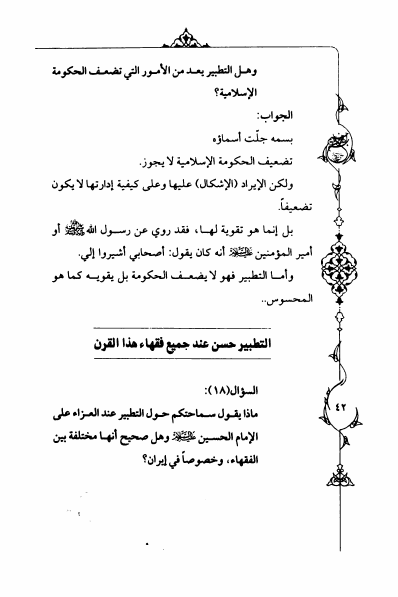 وهل التطبير يعد من الأمور التي تضعف الحكومة
الإسلامية؟
الجواب:
بسمه جلّت أسماؤه
تضعيف الحكومة الإسلامية لا يجوز.
ولكن الإيراد (الإشكال) عليها وعلى كيفية إدارتها لا يكون
تضعيفاً.
بل إنما هو تقوية لهـا، فقد روي عن رسول الله ﷺ أو
أمير المؤمنين أنه كان يقول: أصحابي أشيروا إلي.
وأما التطبير فهو لا يضعف الحكومة بل يقويه كما هو
المحسوس..
التطبير حسن عند جميع فقهاء هذا القرن
السؤال(١٨):
ماذا يقول سماحتكم حول التطبير عند العزاء على
الإمام الحسين وهل صحيح أنها مختلفة بين
الفقهاء، وخصوصاً في إيران؟
٤٢